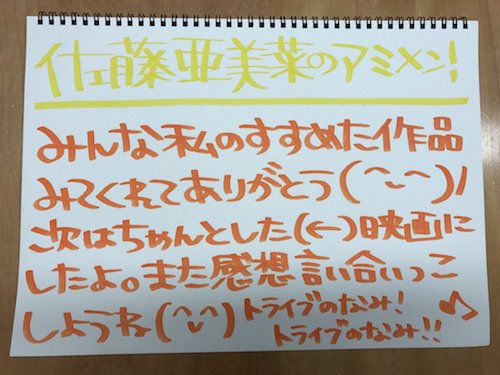 佐藤亜美菜のアミメン!
みんな私のすすめた作品
みてくれてありがとう(^-^)/
次はちゃんとした(←)映画に
したよ。また感想言い合いっこ
しようね(^-^)トライブのなみ!♪
トライブのなみ!!